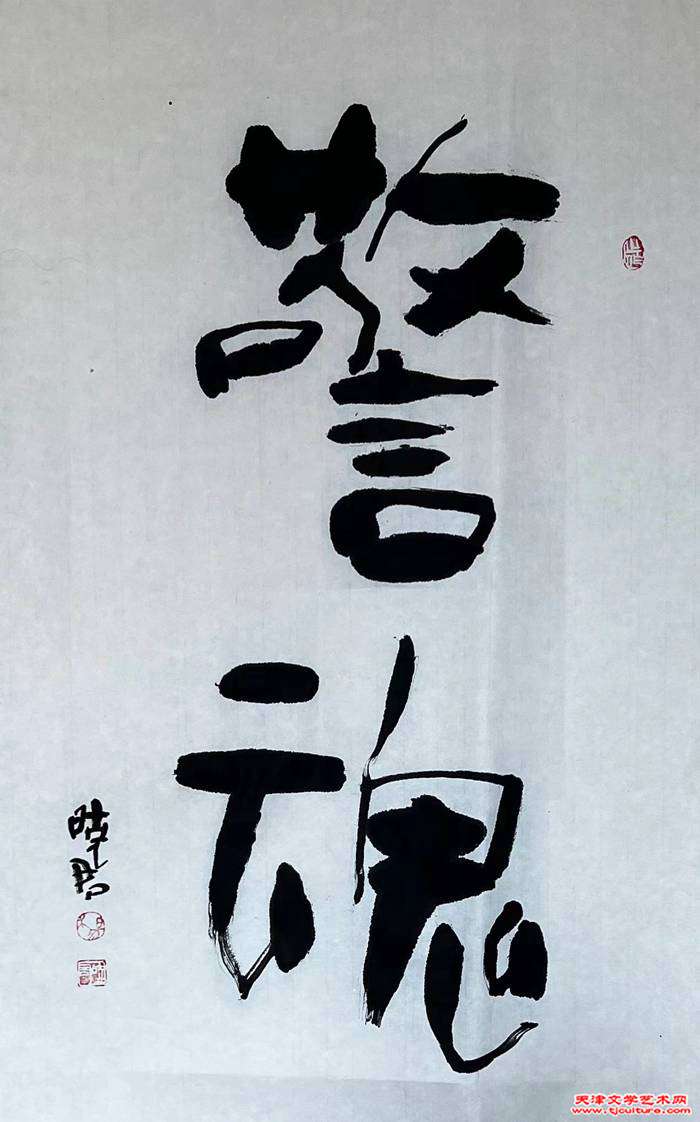 警魂
天津文学艺术网
www.tjculture.com